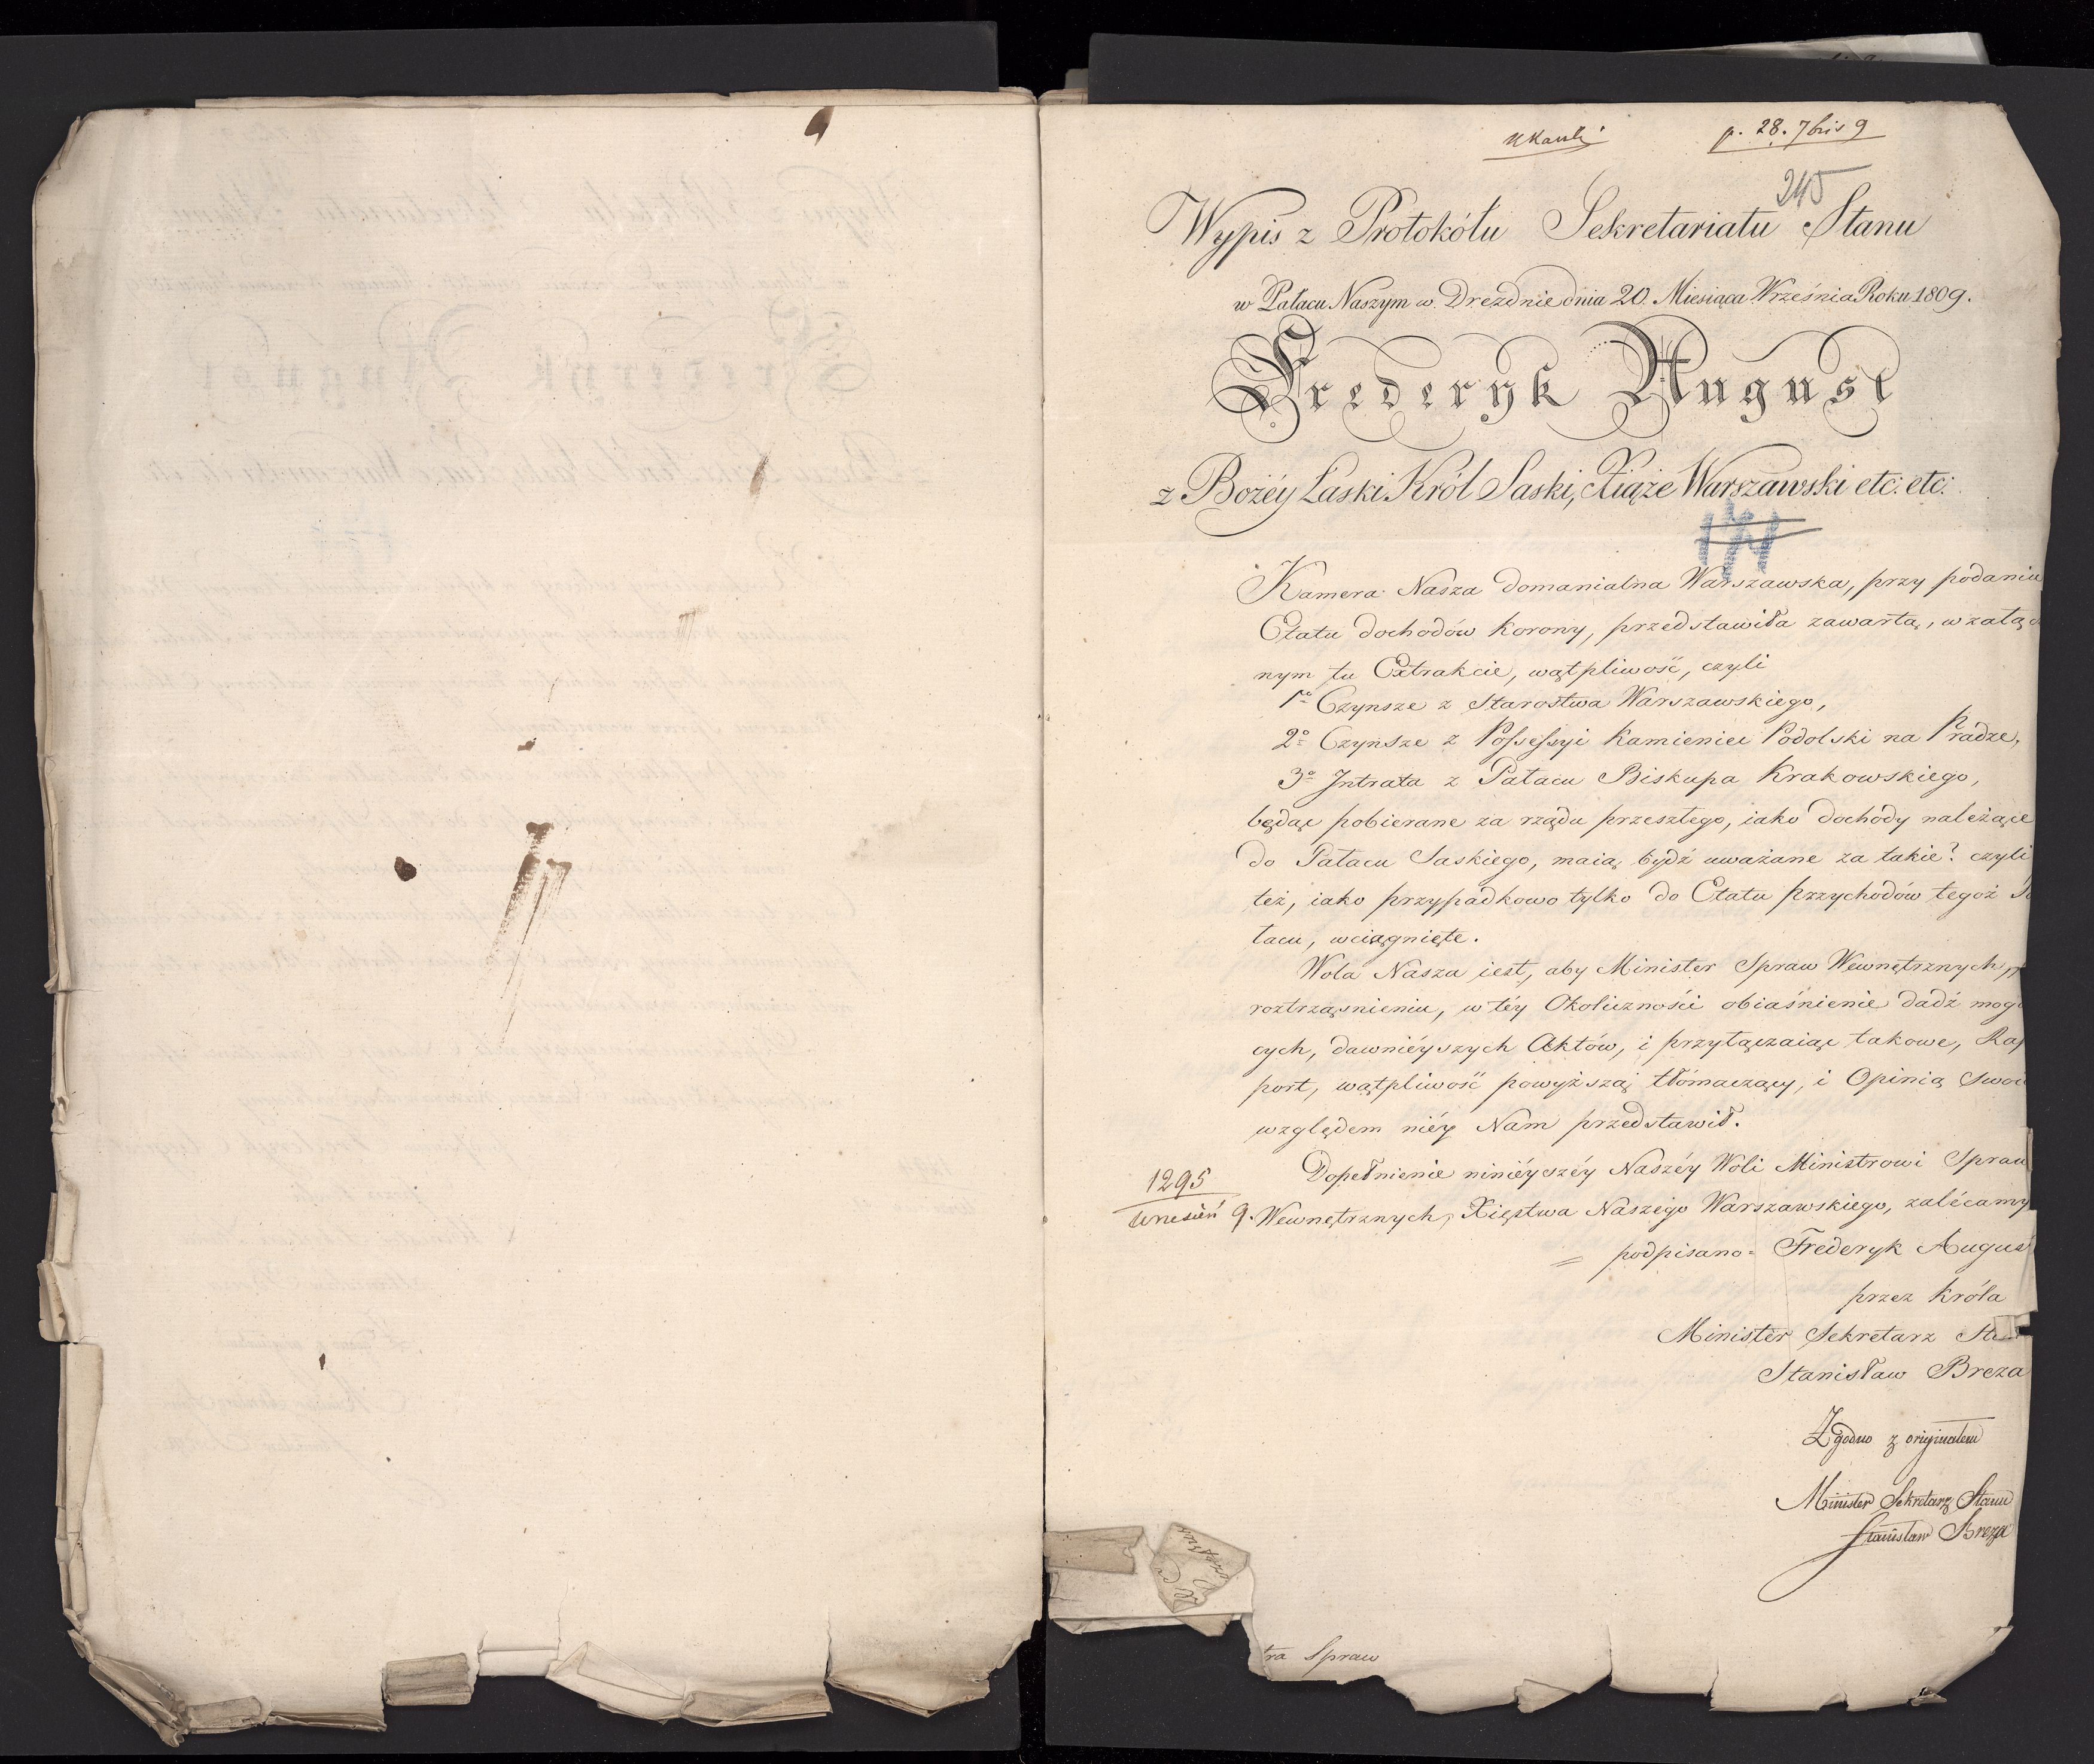 p. 28. 7bris 9
245
Wypis z Protokółu Sekretariatu Stanu
w Pałacu Naszym w Dreznie dnia 20. Miesiąca Września Roku 1809.
Frederyk August
z Bożéy Łaski Król Saski, Xiąże Warszawski etc: etc:
Kamera Nasza domanialna Warszawska, przy podaniu
Etatu dochodów korony, przedstawiła zawartą, w załą
nym tu Extrakcie, wątpliwość, czyli
1o Czynsze z Starostwa Warszawskiego,
2o Czynsze z Possessyi Kamieniec Podolski na Pradze,
3o Jntrata z Pałacu Biskupa Krakowskiego,
będąc pobierane za rządu przeszłego, iako dochody należące
do Pałacu Saskiego, maią bydź uważane za takie? czyli
też, iako przypadkowo tylko do Etatu przychodów tegoż
łacu, wciągnięte.
Wola Nasza iest, aby Minister Spraw Wewnętrznych,
roztrząsnieniu, w téy Okoliczności obiaśnienie dadź mogą
cych, dawniéyszych Aktów, i przyłączaiąc takowe, Rap
port, wątpliwość powyższą tłómaczący, i Opinią Swoi
względem niéy Nam przedstawił.
Dopełnienie niniéyszéy Naszéy Woli Ministrowi Spraw
1295
Wrzesień 9. Wewnętrznych, Xięstwa Naszego Warszawskiego, zalécamy
= podpisano = Frederyk August
przez Króla
Minister Sekretarz
Stanisław Breza
Zgodno z originałem
Minister Sekretarz Stanu
Stanisław Breza
tra Spraw